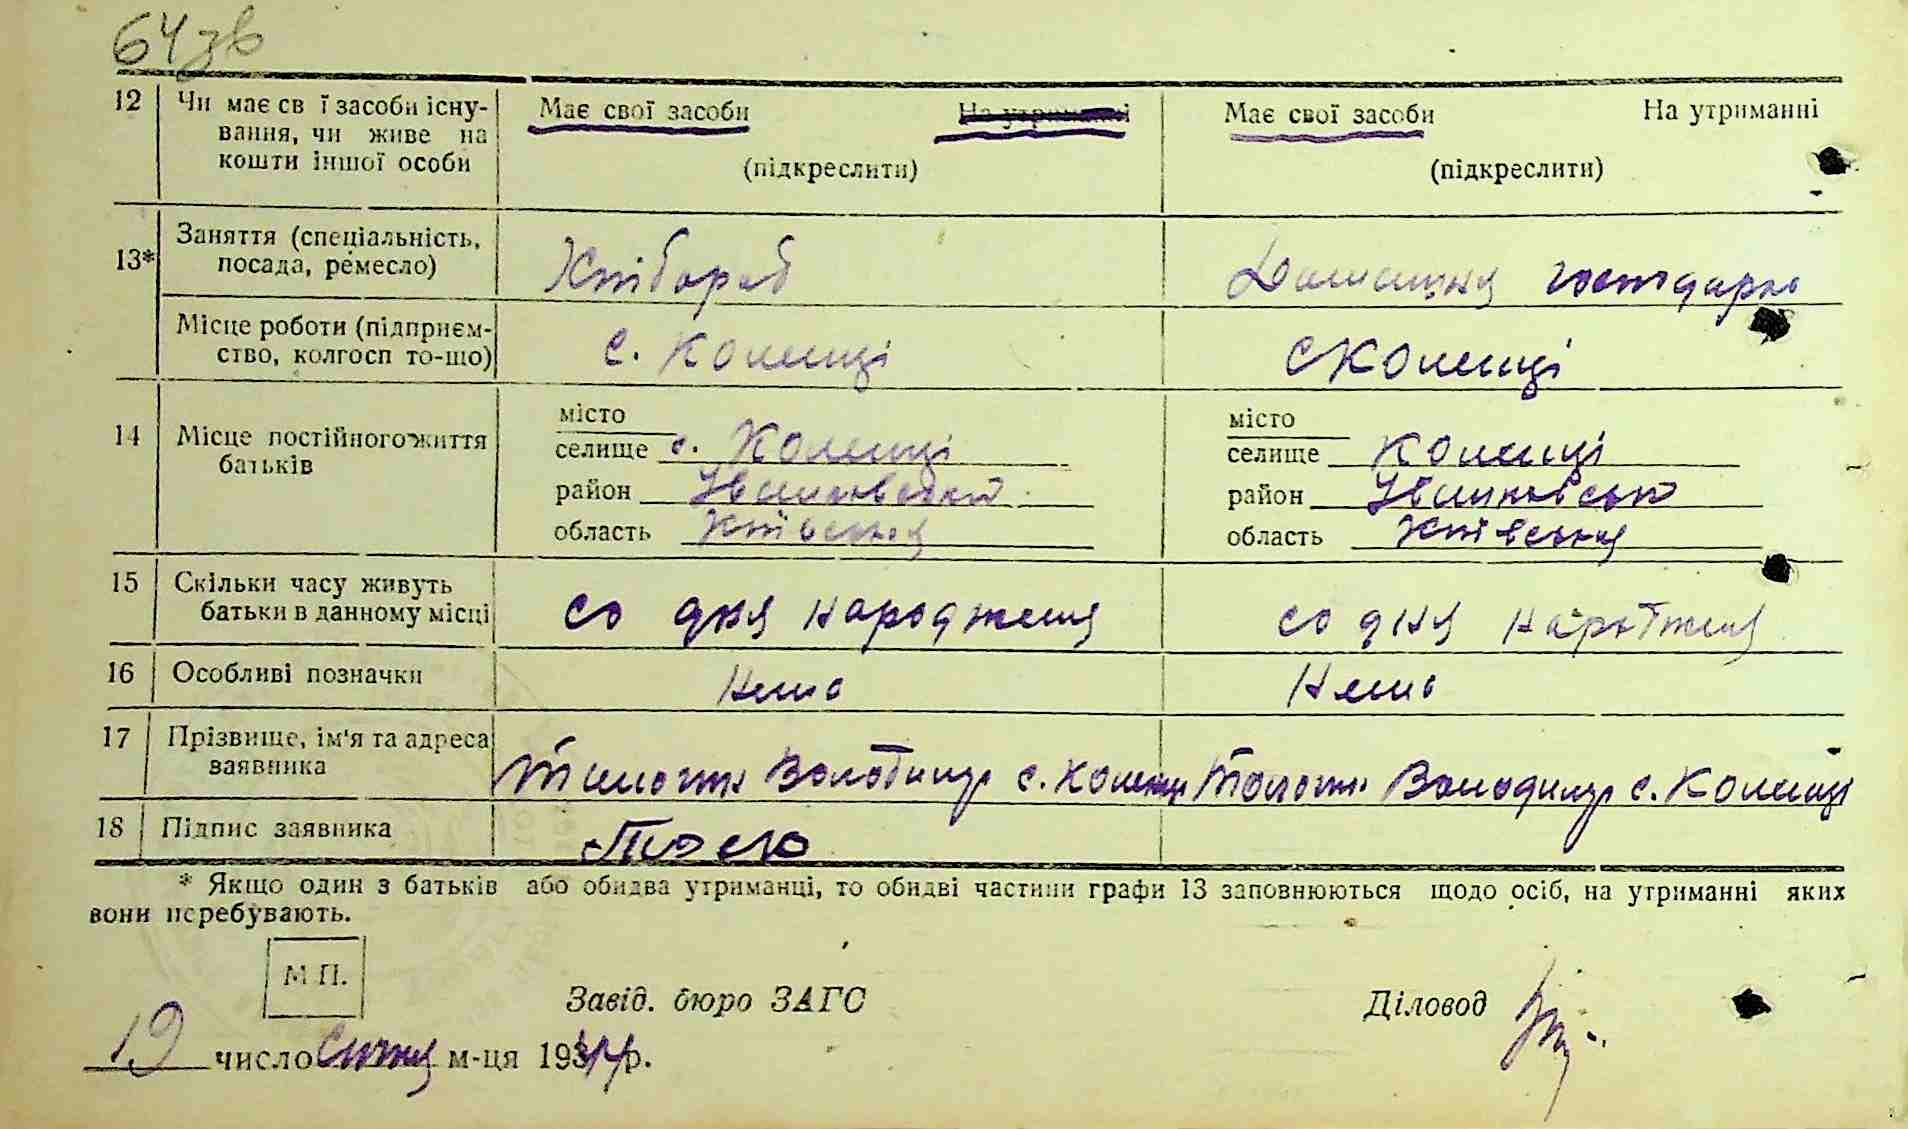 64зв
12 Чи має св ї засоби існу-
вання, чи живе на
кошти іншої особи
Має свої засоби На утриманні
(підкреслити)
Має свої засоби На утриманні
(підкреслити)
13* Заняття (спеціальність,
посада, ремесло)
Хлібороб
Домашня господарка
Місце роботи (підприєм-
ство, колгосп то-що)
с. Коленці
с Коленці
14 Місце постійного життя
батьків
місто
селище с. Коленці
район Іванківський
область Київська
місто
селище Коленці
район Іванковськ
область Київська
15 Скільки часу живуть
батьки в данному місці
со дня народженя
со дня народженя
16 Особливі позначки
Нема
Нема
17 Прізвище, ім'я та адреса
заявника
Володимир с. Коленці
Володимир с. Коленці
18 Підпис заявника
* Якщо один з батьків або обидва утриманці, то обидві частини графи 13 заповнюються щодо осіб, на утриманні яких
вони перебувають.
М П.
Завід. бюро ЗАГС
Діловод
19 число Січня м-ця 1944 р.